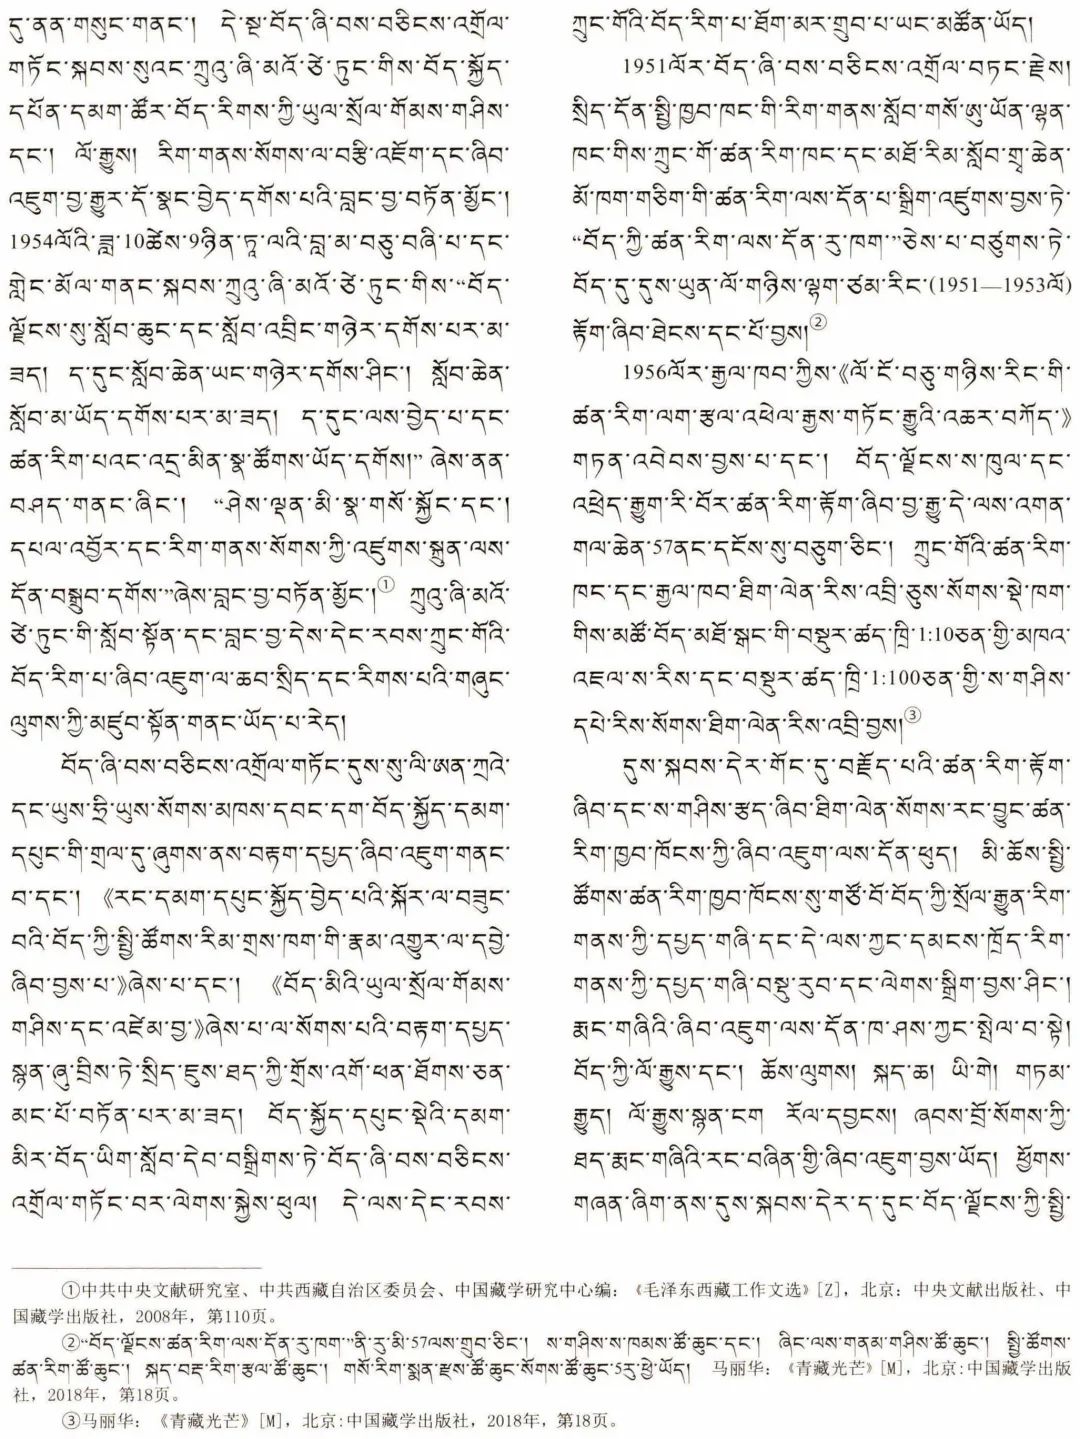 དུ་ནན་གསུང་གནང་། དེ་སྔ་བོད་ཞི་བས་བཅིངས་འགྲོལ་
གཏོང་སྐབས་སུའང་ཀྲུའུ་ཞི་མའོ་ཙེ་ཏུང་གིས་བོད་སྐྱོད་
དཔོན་དམག་ཚོར་བོད་རིགས་ཀྱི་ཡུལ་སྲོལ་གོམས་གཤིས་
དང་། ལོ་རྒྱུས། རིག་གནས་སོགས་ལ་བརྩི་འཇོག་དང་ཞིབ་
འཇུག་བྱ་རྒྱུར་དོ་སྣང་བྱེད་དགོས་པའི་བླང་བྱ་བཏོན་མྱོང་།
1954ལོའི་ཟླ་10ཚེས་9ཉིན་ཏཱ་ལའི་བླ་མ་བཅུ་བཞི་པ་དང་
གླེང་མོལ་གནང་སྐབས་ཀྲུའུ་ཞི་མའོ་ཙེ་ཏུང་གིས་“བོད་
ལྗོངས་སུ་སློབ་ཆུང་དང་སློབ་འབྲིང་གཉེར་དགོས་པར་མ་
ཟད། ད་དུང་སློབ་ཆེན་ཡང་གཉེར་དགོས་ཤིང་། སློབ་ཆེན་
སློབ་མ་ཡོད་དགོས་པར་མ་ཟད། ད་དུང་ལས་བྱེད་པ་དང་
ཚན་རིག་པའང་འདྲ་མིན་སྣ་ཚོགས་ཡོད་དགོས།” ཞེས་ནན་
བཤད་གནང་ཞིང་། “ཤེས་ལྡན་མི་སྣ་གསོ་སྐྱོང་དང་།
དཔལ་འབྱོར་དང་རིག་གནས་སོགས་ཀྱི་འཛུགས་སྐྲུན་ལས་
དོན་བསྒྲུབ་དགོས་”ཞེས་བླང་བྱ་བཏོན་མྱོང་།① ཀྲུའུ་ཞི་མའོ་
ཙེ་ཏུང་གི་སློབ་སྟོན་དང་བླང་བྱ་དེས་དེང་རབས་ཀྲུང་གོའི་
བོད་རིག་པ་ཞིབ་འཇུག་ལ་ཆབ་སྲིད་དང་རིགས་པའི་གཞུང་
ལུགས་ཀྱི་མཛུབ་སྟོན་གནང་ཡོད་པ་རེད།
བོད་ཞི་བས་བཅིངས་འགྲོལ་གཏོང་དུས་སུ་ལི་ཨན་ཀྲའེ་
དང་ཡུས་ཧྲི་ཡུས་སོགས་མཁས་དབང་དག་བོད་སྐྱོད་དམག་
དཔུང་གི་གྲལ་དུ་ཞུགས་ནས་བརྟག་དཔྱད་ཞིབ་འཇུག་གནང་
བ་དང་། 《རང་དམག་དཔུང་སྐྱོད་བྱེད་པའི་སྐོར་ལ་བཟུང་
བའི་བོད་ཀྱི་སྤྱི་ཚོགས་རིམ་གྲས་ཁག་གི་རྣམ་འགྱུར་ལ་དབྱེ་
ཞིབ་བྱས་པ་》ཞེས་པ་དང་། 《བོད་མིའི་ཡུལ་སྲོལ་གོམས་
གཤིས་དང་འཛེམ་བྱ་》ཞེས་པ་ལ་སོགས་པའི་བརྟག་དཔྱད་
སྙན་ཞུ་བྲིས་ཏེ་སྲིད་ཇུས་ཐད་ཀྱི་གྲོས་འགོ་ཕན་ཐོགས་ཅན་
མང་པོ་བཏོན་པར་མ་ཟད། བོད་སྐྱོད་དཔུང་སྡེའི་དམག་
མིར་བོད་ཡིག་སློབ་དེབ་བསྒྲིགས་ཏེ་བོད་ཞི་བས་བཅིངས་
འགྲོལ་གཏོང་བར་ལེགས་སྐྱེས་ཕུལ། དེ་ལས་དེང་རབས་
ཀྲུང་གོའི་བོད་རིག་པ་ཐོག་མར་གྲུབ་པ་ཡང་མཚོན་ཡོད།
1951ལོར་བོད་ཞི་བས་བཅིངས་འགྲོལ་བཏང་རྗེས།
སྲིད་དོན་སྤྱི་ཁྱབ་ཁང་གི་རིག་གནས་སློབ་གསོ་ཨུ་ཡོན་ལྷན་
ཁང་གིས་ཀྲུང་གོ་ཚན་རིག་ཁང་དང་མཐོ་རིམ་སློབ་གྲྭ་ཆེན་
མོ་ཁག་གཅིག་གི་ཚན་རིག་ལས་དོན་པ་སྒྲིག་འཛུགས་བྱས་ཏེ་
“བོད་ཀྱི་ཚན་རིག་ལས་དོན་རུ་ཁག་”ཅེས་པ་བཙུགས་ཏེ་
བོད་དུ་དུས་ཡུན་ལོ་གཉིས་ལྷག་ཙམ་རིང་(1951—1953ལོ)
རྟོག་ཞིབ་ཐེངས་དང་པོ་བྱས།②
1956ལོར་རྒྱལ་ཁབ་ཀྱིས་《ལོ་ངོ་བཅུ་གཉིས་རིང་གི་
ཚན་རིག་ལག་རྩལ་འཕེལ་རྒྱས་གཏོང་རྒྱུའི་འཆར་བཀོད་》
གཏན་འབེབས་བྱས་པ་དང་། བོད་ལྗོངས་ས་ཁུལ་དང་
འཕྲེད་རྒྱུག་རི་བོར་ཚན་རིག་རྟོག་ཞིབ་བྱ་རྒྱུ་དེ་ལས་འགན་
གལ་ཆེན་57ནང་དངོས་སུ་བཅུག་ཅིང་། ཀྲུང་གོའི་ཚན་རིག་
ཁང་དང་རྒྱལ་ཁབ་ཐིག་ལེན་རིས་འབྲི་ཅུས་སོགས་སྡེ་ཁག་
གིས་མཚོ་བོད་མཐོ་སྒང་གི་བསྡུར་ཚད་ཁྲི་1:10ཅན་གྱི་མཁའ་
འཇལ་ས་རིས་དང་བསྡུར་ཚད་ཁྲི་1:100ཅན་གྱི་ས་གཤིས་
དཔེ་རིས་སོགས་ཐིག་ལེན་རིས་འབྲི་བྱས།③
དུས་སྐབས་དེར་གོང་དུ་བརྗོད་པའི་ཚན་རིག་རྟོག་
ཞིབ་དང་ས་གཤིས་རྩད་ཞིབ་ཐིག་ལེན་སོགས་རང་བྱུང་ཚན་
རིག་ཁྱབ་ཁོངས་ཀྱི་ཞིབ་འཇུག་ལས་དོན་ཕུད། མི་ཆོས་སྤྱི་
ཚོགས་ཚན་རིག་ཁྱབ་ཁོངས་སུ་གཙོ་བོ་བོད་ཀྱི་སྲོལ་རྒྱུན་རིག་
གནས་ཀྱི་དཔྱད་གཞི་དང་དེ་ལས་ཀྱང་དམངས་ཁྲོད་རིག་
གནས་ཀྱི་དཔྱད་གཞི་བསྡུ་རུབ་དང་ལེགས་སྒྲིག་བྱས་ཤིང་།
རྨང་གཞིའི་ཞིབ་འཇུག་ལས་དོན་ཁ་ཤས་ཀྱང་སྤེལ་བ་སྟེ།
བོད་ཀྱི་ལོ་རྒྱུས་དང་། ཆོས་ལུགས། སྐད་ཆ། ཡི་གེ། གཏམ་
རྒྱུད། ལོ་རྒྱུས་སྙན་ངག རོལ་དབྱངས། ཞབས་བྲོ་སོགས་ཀྱི་
ཐད་རྨང་གཞིའི་རང་བཞིན་གྱི་ཞིབ་འཇུག་བྱས་ཡོད། ཕྱོགས་
གཞན་ཞིག་ནས་དུས་སྐབས་དེར་ད་དུང་བོད་ལྗོངས་ཀྱི་སྤྱི་
①中共中央文献研究室、中共西藏自治区委员会、中国藏学研究中心编：《毛泽东西藏工作文选》[Z]，北京：中央文献出版社、中
国藏学出版社，2008年，第110页。
②“བོད་ལྗོངས་ཚན་རིག་ལས་དོན་རུ་ཁག་”ནི་རུ་མི་57ལས་གྲུབ་ཅིང་། ས་གཤིས་ས་ཁམས་ཚོ་ཆུང་དང་། ཞིང་ལས་གནམ་གཤིས་ཚོ་ཆུང་། སྤྱི་ཚོགས་
ཚན་རིག་ཚོ་ཆུང་། སྐད་བརྡ་རིག་རྩལ་ཚོ་ཆུང་། གསོ་རིག་སྨན་རྫས་ཚོ་ཆུང་སོགས་ཚོ་ཆུང་5རུ་ཕྱེ་ཡོད། 马丽华：《青藏光芒》[M]，北京:中国藏学出版
社，2018年，第18页。
③马丽华：《青藏光芒》[M]，北京:中国藏学出版社，2018年，第18页。